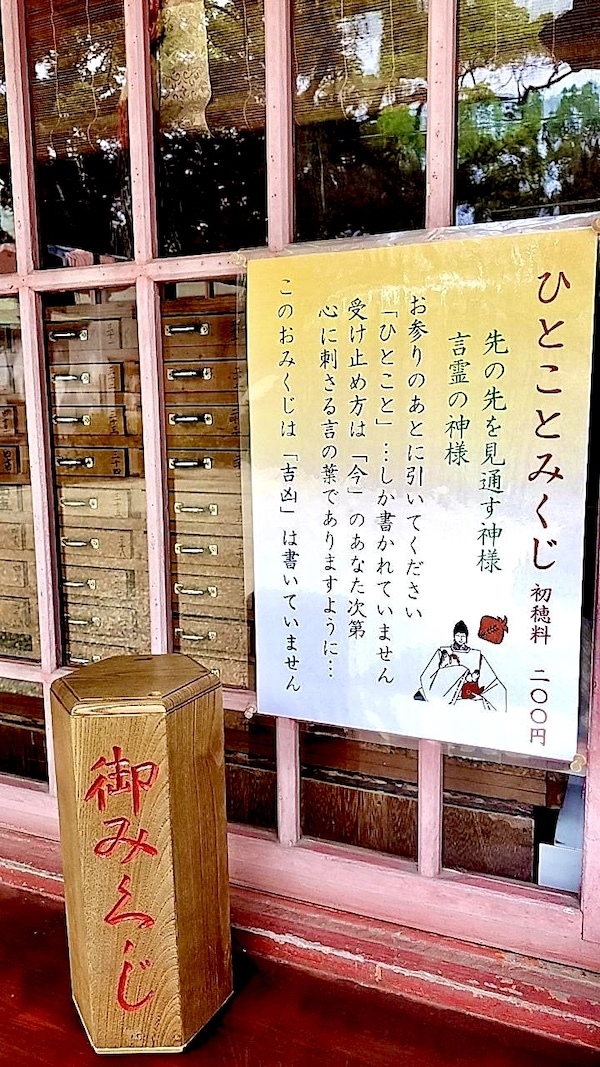 ひとことみくじ 初穂料 二〇〇円
先の先を見通す神様
言霊の神様
お参りのあとに引いてください
「ひとこと」…しか書かれていません
受け止め方は「今」のあなた次第
心に刺さる言の葉でありますように…
このおみくじは「吉凶」は書いていません
御みくじ